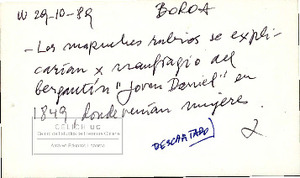 W 29-10-89 BOROA
- Los mapuches rubios se expli-
carían x naufragio del
bergantín "Joven Daniel" en
1849, donde venían mujeres.
CELICH UC
DESCARTADO